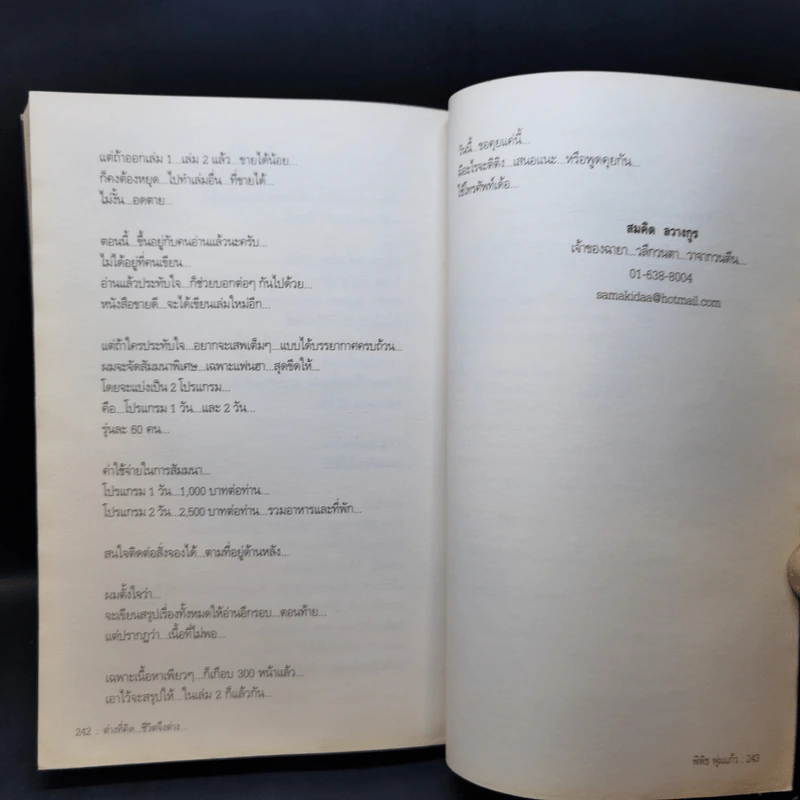 แต่ถ้าออกเล่ม 1...เล่ม 2 แล้ว...ขายได้น้อย...
ก็คงต้องหยุด...ไปทำเล่มอื่น...ที่ขายได้...
ไม่งั้น...อดตาย...
ตอนนี้...ขึ้นอยู่กับคนอ่านแล้วนะครับ...
ไม่ได้อยู่ที่คนเขียน...
อ่านแล้วประทับใจ...ก็ช่วยบอกต่อๆ กันไปด้วย...
หนังสือขายดี...จะได้เขียนเล่มใหม่อีก...
แต่ถ้าใครประทับใจ...อยากจะเสพเต็มๆ...แบบได้บรรยากาศครบถ้วน...
ผมจะจัดสัมมนาพิเศษ...เฉพาะแฟนฮา...สุดขีดให้...
โดยจะแบ่งเป็น 2 โปรแกรม...
คือ...โปรแกรม 1 วัน...และ 2 วัน...
รุ่นละ 60 คน...
ค่าใช้จ่ายในการสัมมนา...
โปรแกรม 1 วัน...1,000 บาทต่อท่าน...
โปรแกรม 2 วัน...2,500 บาทต่อท่าน...รวมอาหารและที่พัก...
สนใจติดต่อสั่งจองได้...ตามที่อยู่ด้านหลัง...
ผมตั้งใจว่า...
จะเขียนสรุปเรื่องทั้งหมดให้อ่านอีกรอบ...ตอนท้าย...
แต่ปรากฏว่า...เนื้อที่ไม่พอ...
เฉพาะเนื้อหาเพียวๆ...ก็เกือบ 300 หน้าแล้ว...
เอาไว้จะสรุปให้...ในเล่ม 2 ก็แล้วกัน...
242 : ต่างที่คิด...ชีวิตจึงต่าง...
วันนี้...ขอคุยแค่นี้...
มีอะไรจะติติง...เสนอแนะ...หรือพูดคุยกัน...
ใช้โทรศัพท์เด้อ...
สมคิด ลวางกูร
เจ้าของฉายา...วลีกวนตา...วาจากวนตีน...
01-638-8004
samakidaa@hotmail.com
พิคิธ พุ่มแก้ว : 243